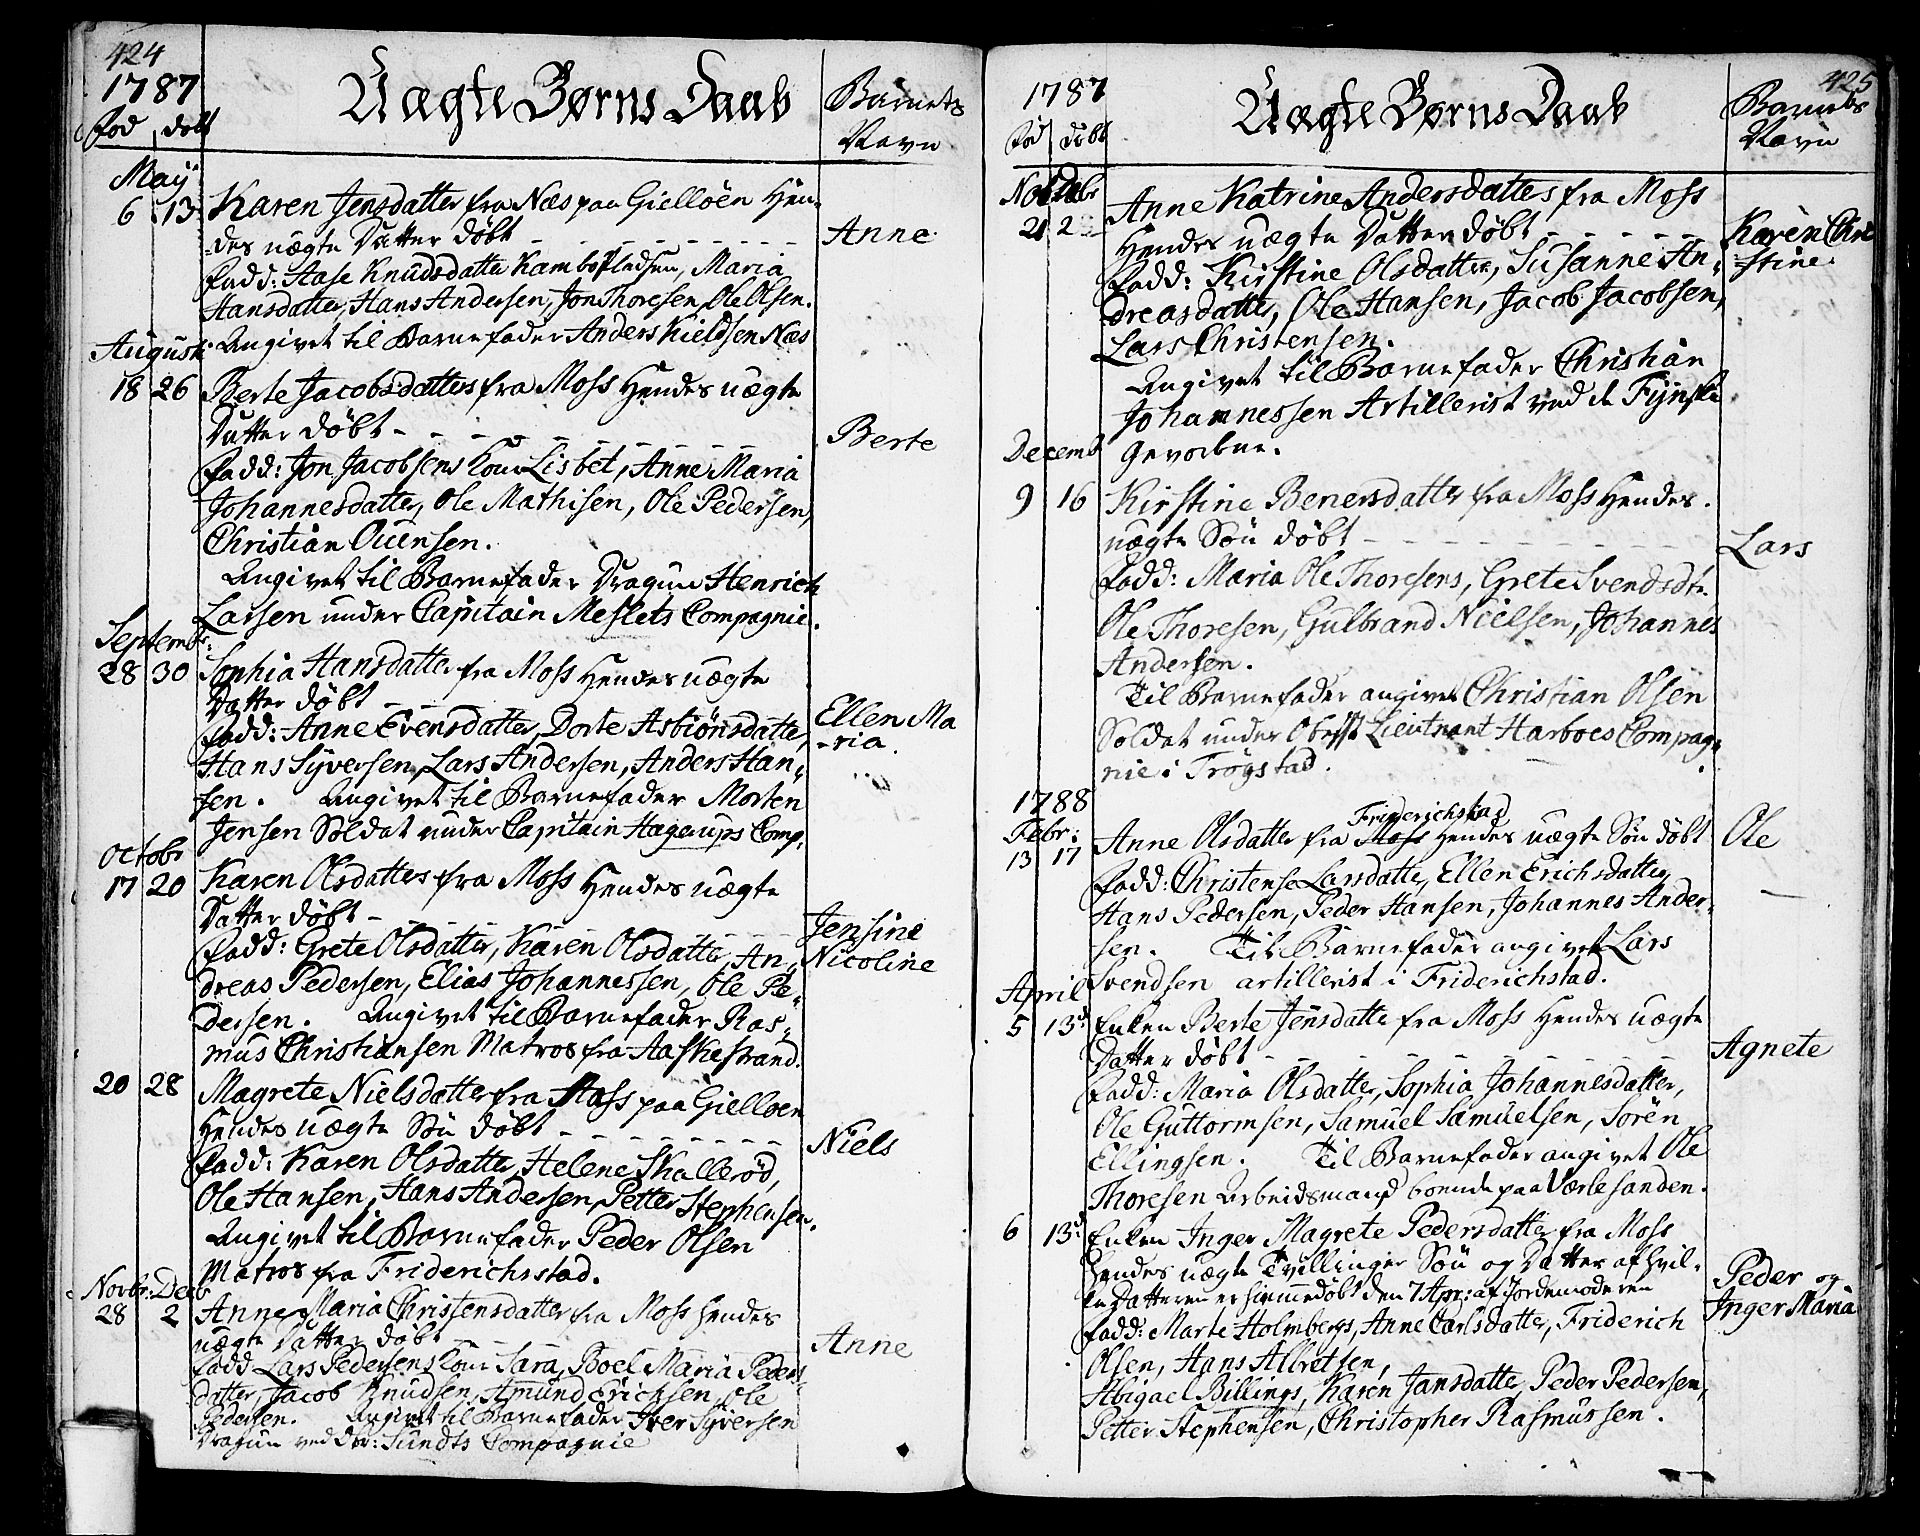 424
1787
Uægte Børns Daab
Barnets
Navn
Fød døbt
May
6 13 Karen Jensdatter fra Næs paa Gielløen Hen-
-des uægte Datter døbt
Anne
Fadd: Aase Knudsdatter Kambopladsen, Maria
Hansdatter, Hans Andersen, Jon Thoresen, Ole Olsen.
Angivet til Barnefader Anders Kieldsen Næs
August
18 26 Berte Jacobsdatter fra Moss Hendes uægte
Datter døbt
Berte
Fadd: Jon Jacobsens Kone Lisbet, Anne Maria
Johannesdatter, Ole Mathisen, Ole Pedersen,
Christian Ouensen.
Angivet til Barnefader Dragun Henrich
Larsen under Capitain Meslets Compagnie.
Septembr:
28 30 Sophia Hansdatter fra Moss Hendes uægte
Datter døbt
Ellen Ma
-ria.
Fadd: Anne Evensdatter, Dorte Asbiørnsdatter,
Hans Syversen, Lars Andersen, Anders Han-
sen. Angivet til Barnefader Morten
Jensen Soldat under Capitain Hagerups Comp.
Octobr
17 20 Karen Olsdatter fra Moss Hendes uægte
Datter døbt
Jensine
Nicoline
Fadd: Grete Olsdatter, Karen Olsdatter, An-
dreas Pedersen, Elias Johannessen, Ole Pe-
dersen. Angivet til Barnefader Ras-
mus Christiansen Matros fra Aaskestrand.
20 28 Magrete Nielsdatter fra Moss paa Gielløen
Hendes uægte Søn døbt
Niels
Fadd: Karen Olsdatter, Helene Skallerød,
Ole Hansen, Hans Andersen, Petter Stephensen.
Angivet til Barnefader Peder Olsen
Matros fra Friderichsstad.
Novbr: Decb
28 2 Anne Maria Christensdatter fra Moss hendes
uægte Datter døbt
Anne
Fadd Lars Pedersens Kone Sara, Boel Maria Peders-
datter, Jacob Knudsen, Amund Erichsen, Ole
Pedersen. Angivet til Barnefader Iver Syversen
Dragun ved Sundts Compagnie
425
1787
Uægte Børns Daab
Barnets
Navn
Fød døbt
21 2 Anne Katrine Andersdatter fra Moss
Hendes uægte Datter døbt
Karen Chri
-stine.
Fadd: Kirstine Olsdatter, Susanne An-
dreasdatter, Ole Hansen, Jacob Jacobsen,
Lars Christensen.
Angivet til Barnefader Christian
Johannessen Artillerist ved de Fynske
Gevorbne.
Decemb
9 16 Kirstine Benersdatter fra Moss Hendes
uægte Søn døbt
Lars
Fadd: Maria Ole Thoresens, Grete Svendsdtr
Ole Thoresen, Gulbrand Nielsen, Johannes
Andersen.
Til Barnefader angivet Christian Olsen
Soldat under Obrist Lieutnant Harboes Compag-
nie i Trøgstad.
1788
Febr:
Friderichstad
13 17 Anne Olsdatter fra Moss Hendes uægte Søn døbt
Ole
Fadd: Christense Larsdatter, Ellen Erichsdatter,
Hans Pedersen, Peder Hansen, Johannes Ander-
-sen. Til Barnefader angivet Lars
Svendsen artillerist i Friderichstad.
April
5 13d Enken Berte Jensdatter fra Moss Hendes uægte
Datter døbt
Agnete
Fadd: Maria Olsdatter, Sophia Johannesdatter,
Ole Guttormsen, Samuel Samuelsen, Søren
Ellingsen. Til Barnefader angivet Ole
Thoresen Arbeidsmand boende paa Værlesanden.
6 13d Enken Inger Magrete Pedersdatter fra Moss
Hendes uægte Tvillinger Søn og Datter af hvil-
ke Datteren er hiemmedøbt den 7 Apr: af Jordemoderen
Peder og
Inger Maria
Fadd: Marte Holmbergs, Anne Carlsdatter, Friderich
Olsen, Hans Albretsen,
Abigael Billings, Karen Jansdatter, Peder Pedersen,
Petter Stephensen, Christopher Rasmussen.